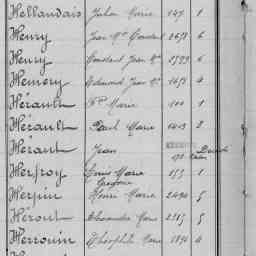 Hellandais Julien Marie 147 1
Henry Jean Mie Constant 2678 6
Henry Constant Jean Mie 1799 6
Hemery Edmond Jean Mie 1678 4
Hérault Fs Marie 100 1
Hérault Paul Marie 6403 2
Héraut Jean
Herfroy Louis Marie 177 1
Grégoire
Herpin Henri Marie 2490 5
Hérout Alexandre Marie 2315 5
Herrouin Théophile Marie 1890 4